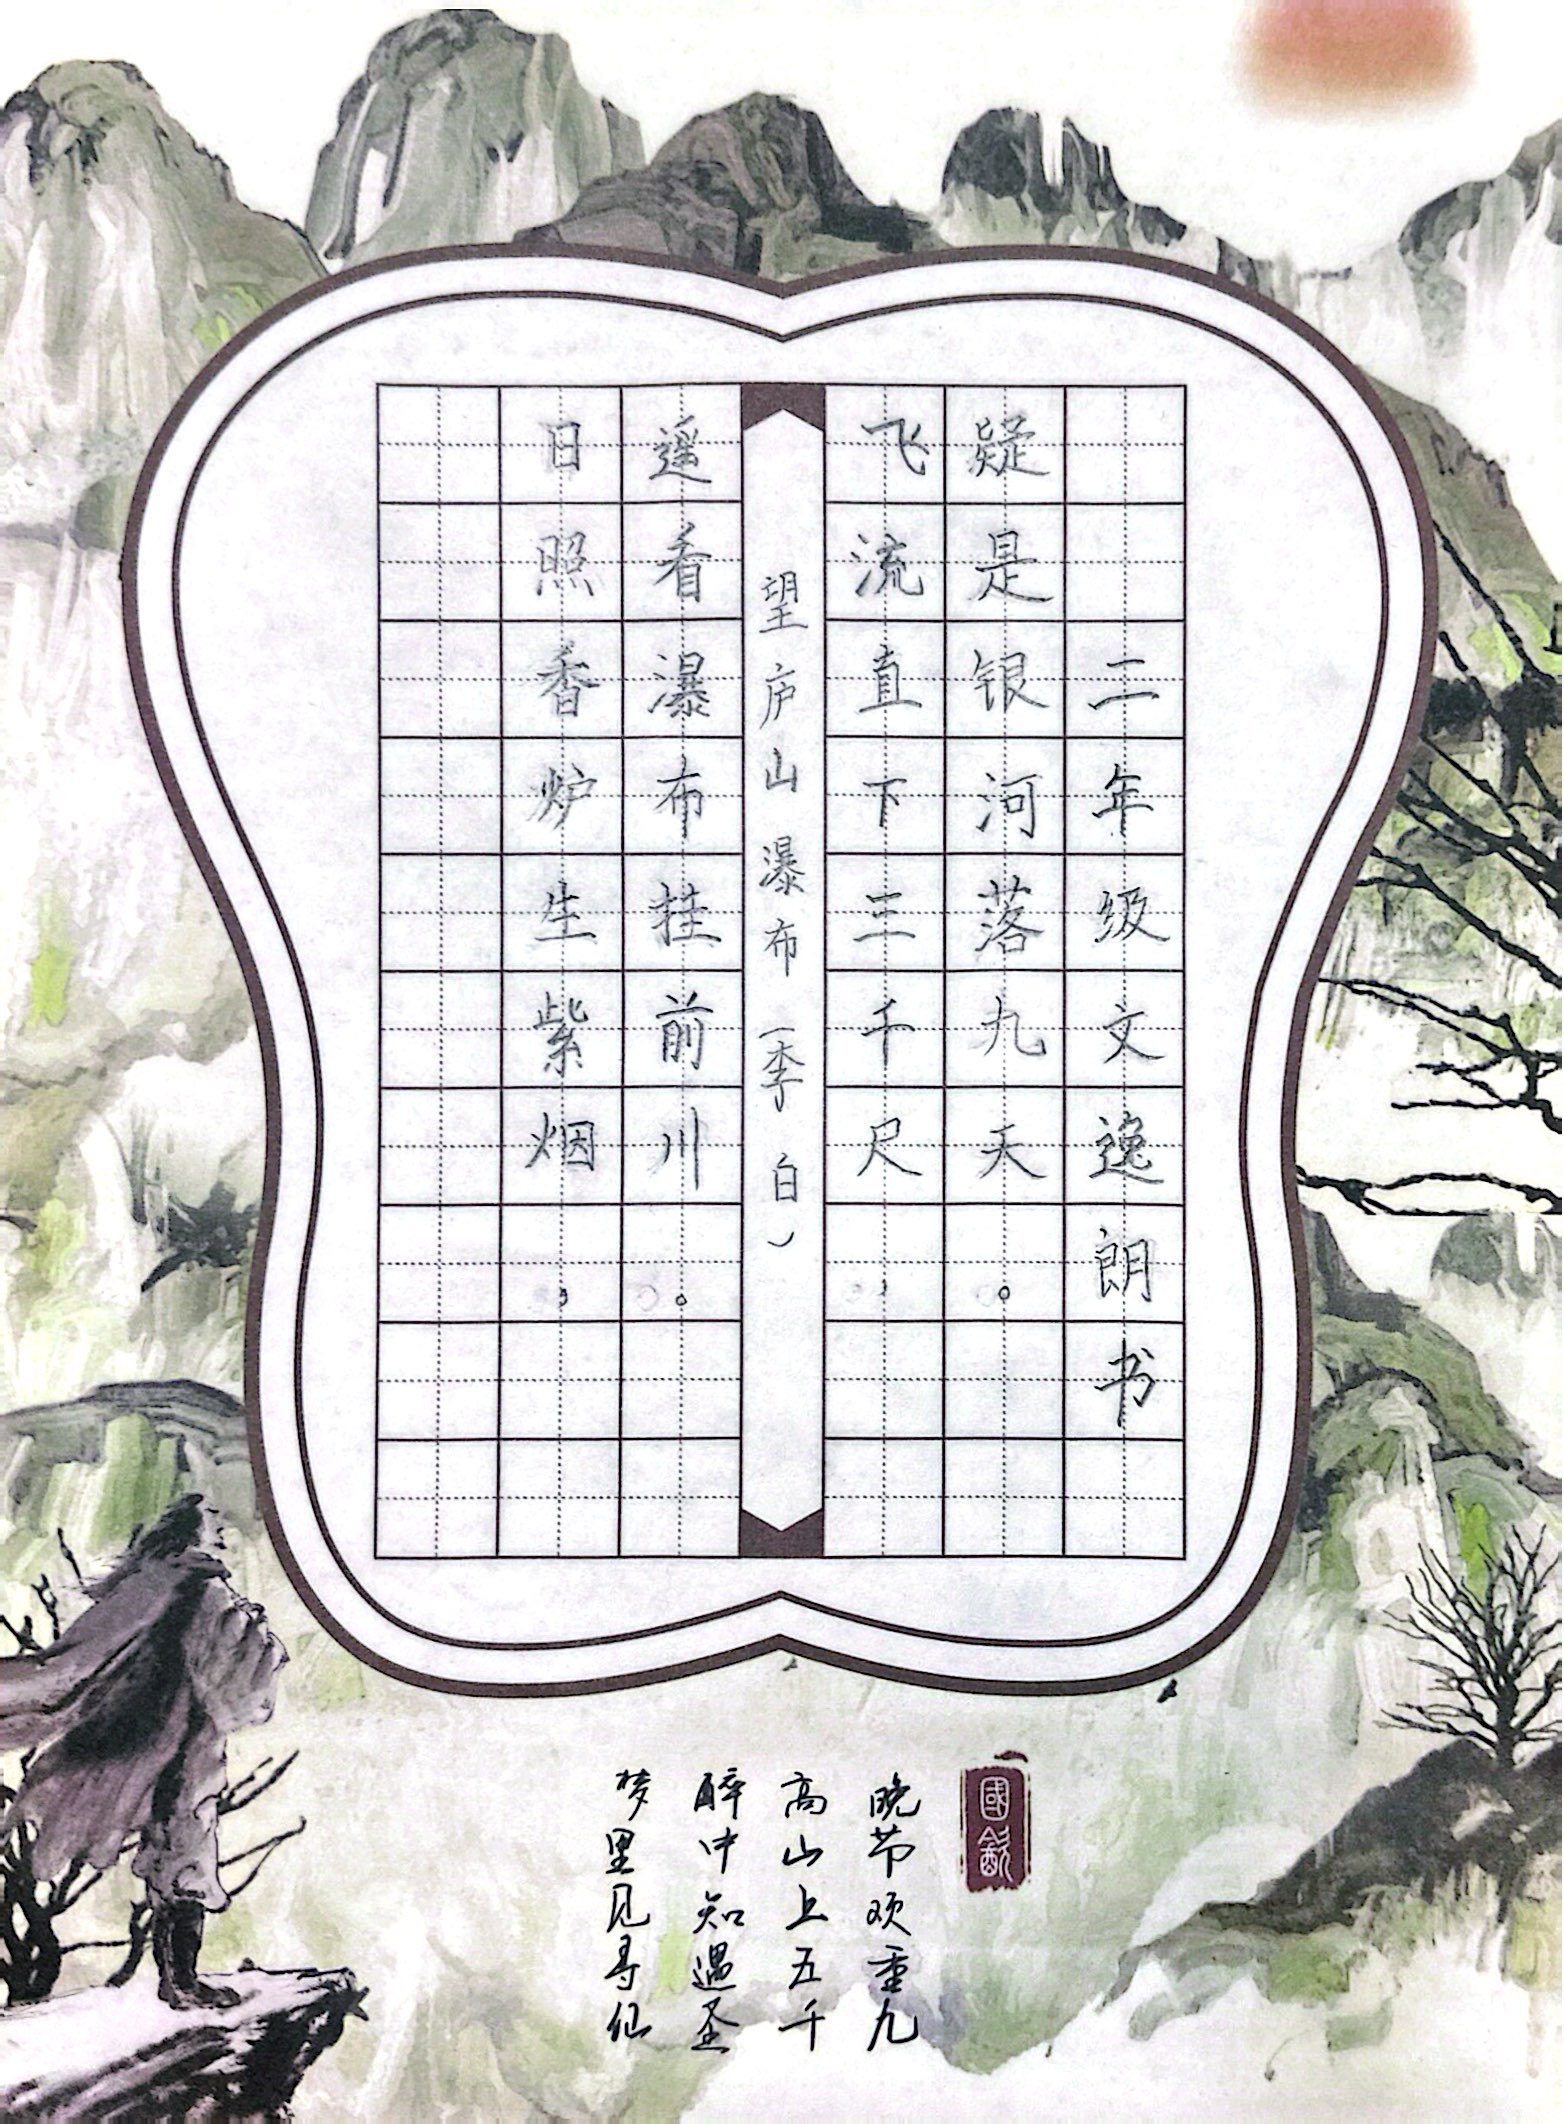 望庐山瀑布（李白）
日照香炉生紫烟，
遥看瀑布挂前川。
飞流直下三千尺，
疑是银河落九天。
二年级文逸朗书
國
晚节欢重九
高山上五千
醉中知遇圣
梦里见寻仙